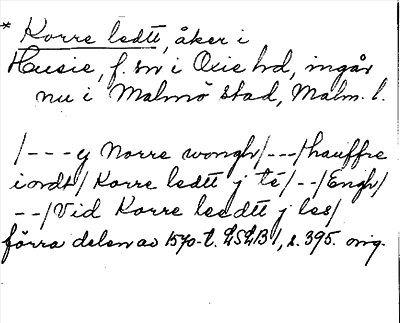 * Korre ledtt, åker i
Husie, f. sn i Oxie hd, ingår
nu i Malmö stad, Malm. l.
/---y Norre wongh/---/hauffre
iordt/ Korre ledtt j té/--/Engh/
--/Vid Korre leedtt j les/
förra delen av 1570-t. LSLB 1, s. 395. orig.